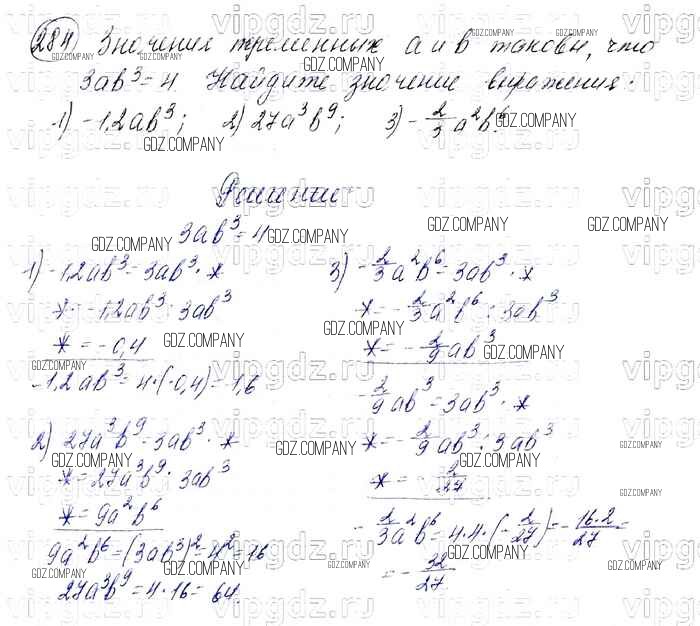 284 Значения переменных a и b таковы, что
3ab³ = 4 Найдите значение выражения:
1) -1,2ab³; 2) 27a³b⁹; 3) -2/3 a²b⁶.
Решение
3ab³ = 4
1) -1,2ab³ = 3ab³ · *
* = -1,2ab³ : 3ab³
* = -0,4
-1,2ab³ = 4·(-0,4) = -1,6
2) 27a³b⁹ = 3ab³ · *
* = 27a³b⁹ : 3ab³
* = 9a²b⁶
9a²b⁶ = (3ab³)² = 4² = 16
27a³b⁹ = 4·16 = 64.
3) -2/3 a²b⁶ = 3ab³ · *
* = -2/3 a²b⁶ : 3ab³
* = -2/9 ab³
-2/9 ab³ = 3ab³ · *
* = -2/9 ab³ : 3ab³
* = -2/27
-2/3 a²b⁶ = 4·4·(-2/27) = -16·2/27 =
= -32/27.
GDZ.COMPANY
vipgdz.ru